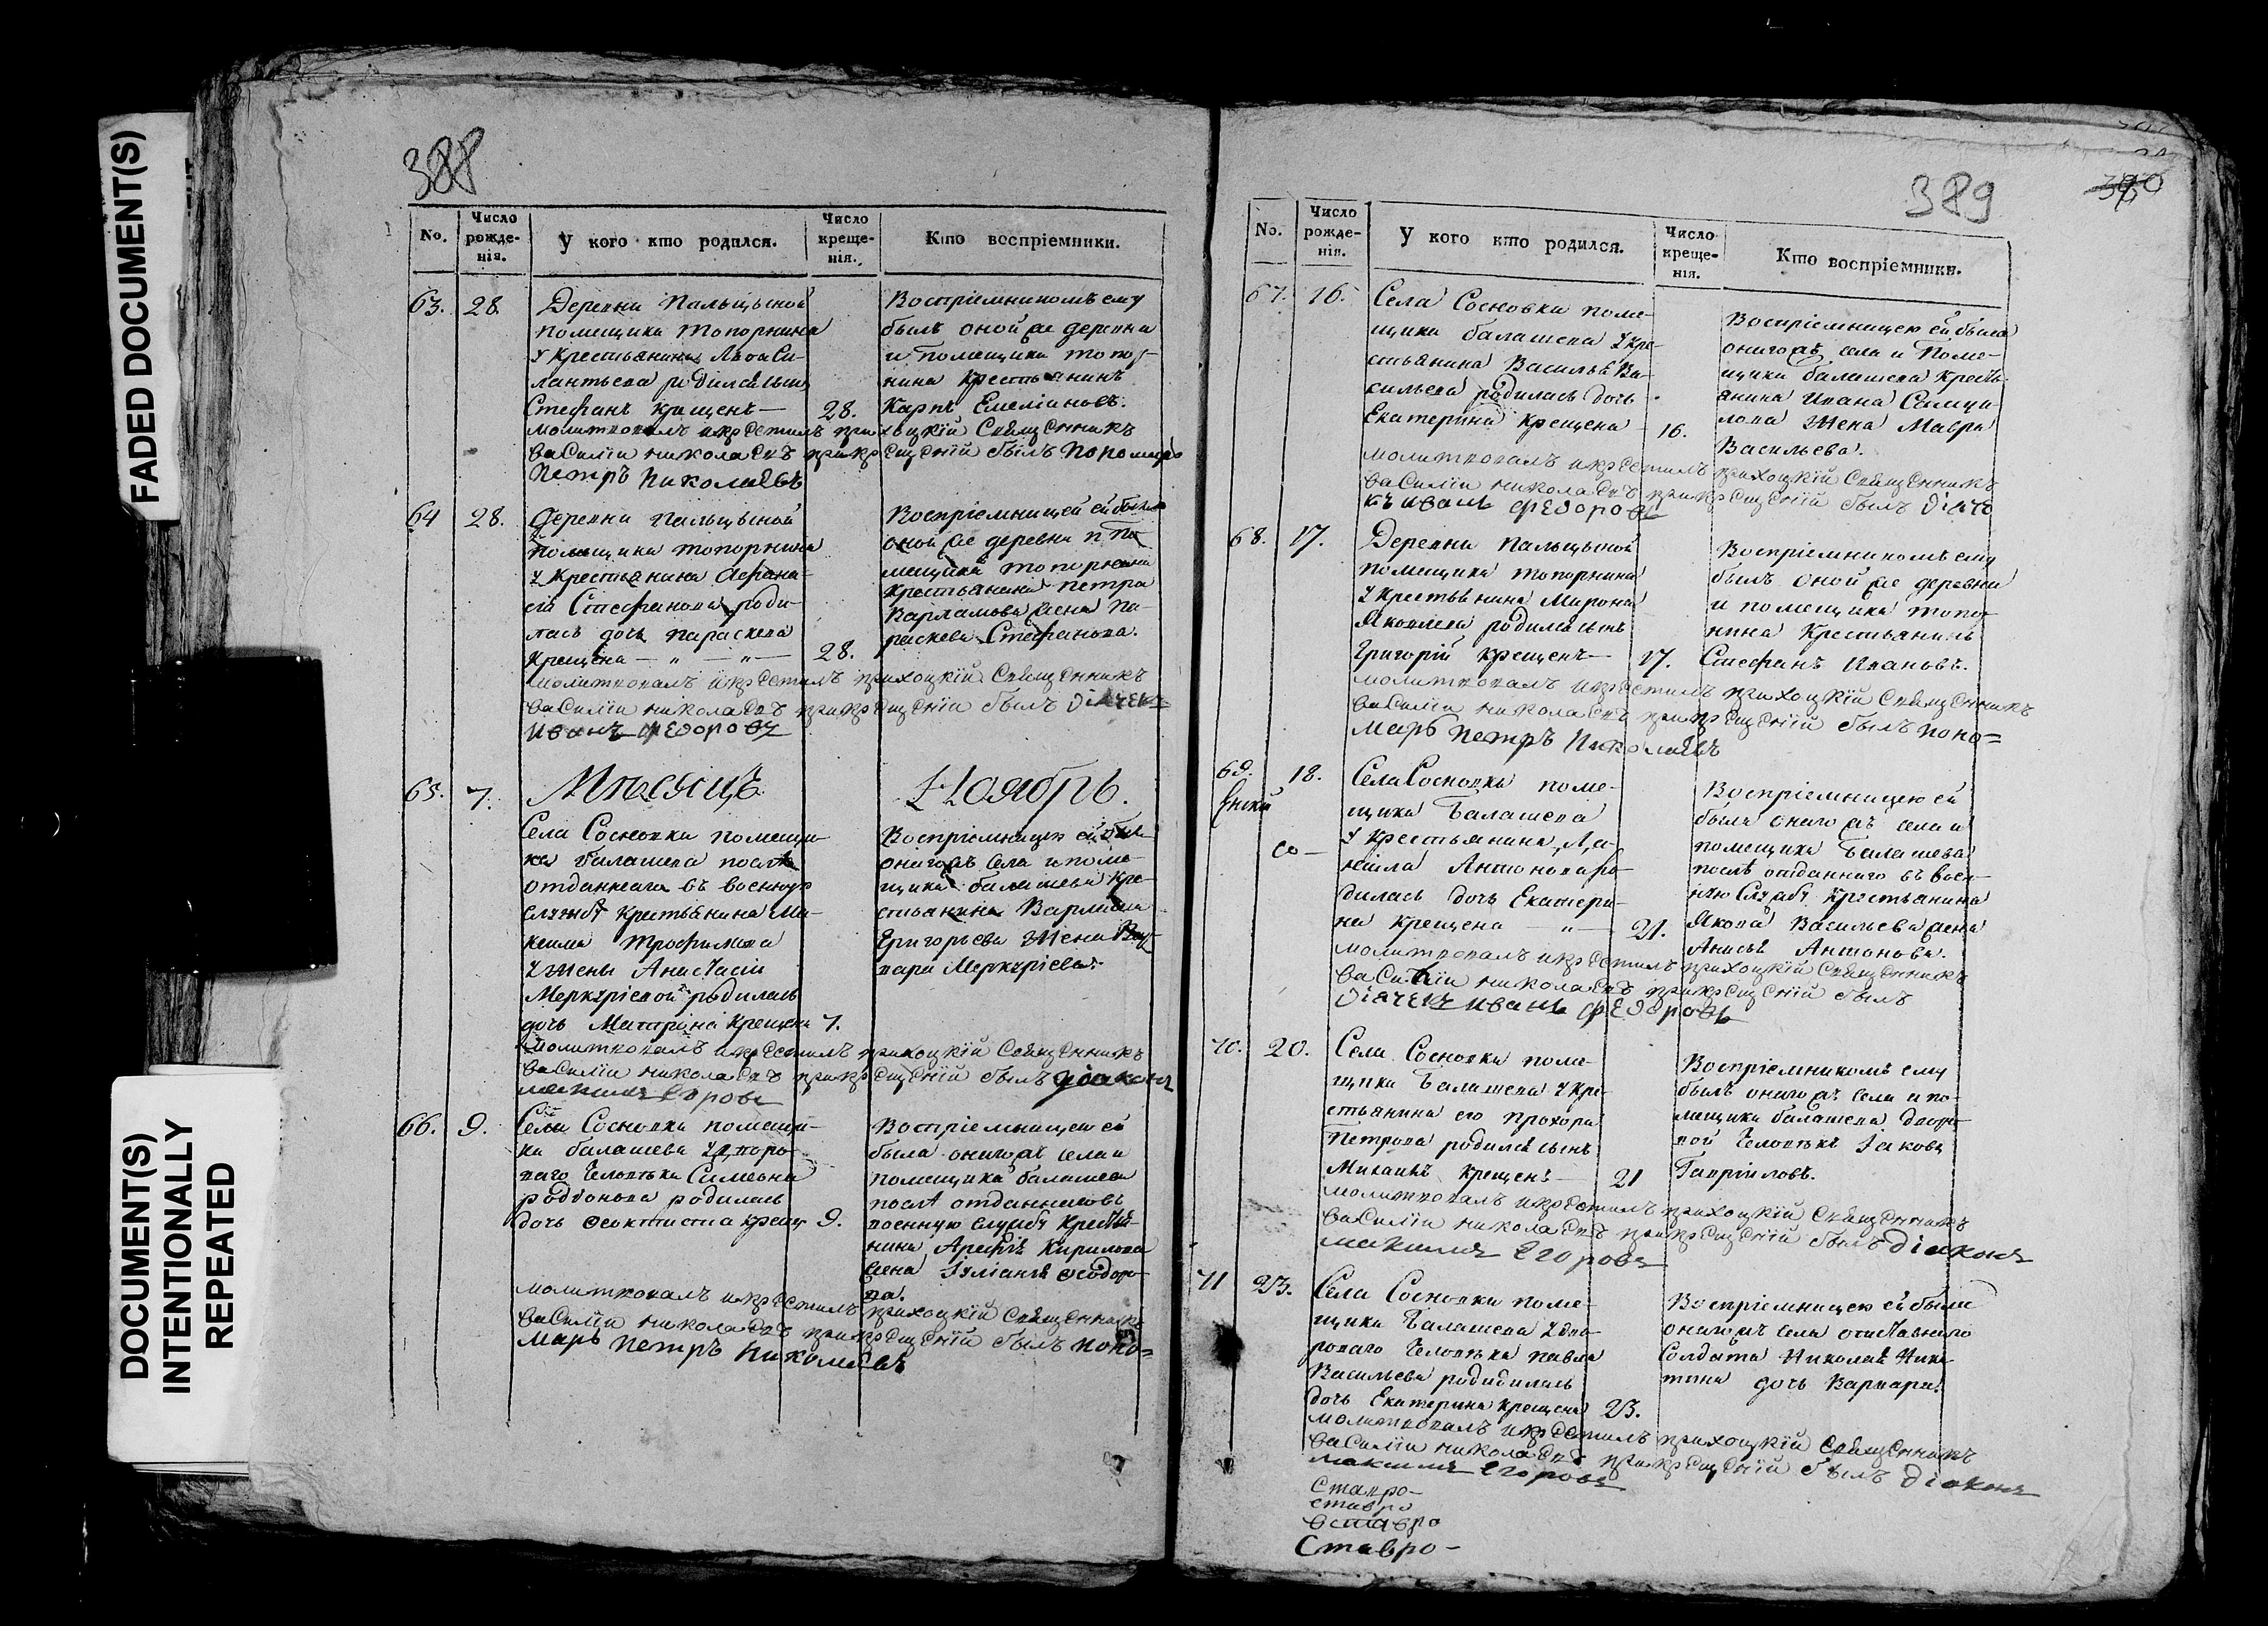 FADED DOCUMENT(S)
DOCUMENT(S)
INTENTIONALLY
REPEATED
388
No.
Число рожде-нія.
У кого кто родился.
Число креще-нія.
Кто воспріемники.
63. 28.
Деревни Пальцыной
помещика Топорнина
у крестьянина
лантьева родился сынъ
Стефанъ крещенъ — 28.
Воспріемникомъ ему
былъ оной же деревни
и помещика Топор-
нина крестьянинъ
Карпъ Емеліановъ.
молитвовалъ и крестилъ прихоцкій Священникъ
Василіи николаевъ при крещеніи былъ пономарь
Петръ Николаевъ
64 28.
Деревни Пальцыной
помещика Топорнина
у крестьянина Афана-
сія Стефанова роди-
лась дочь Параскева
крещена — „ — „ — 28.
Воспріемницей ей была
оной же деревни и по-
мещика Топорнина
крестьянина Петра
Варламова жена Па-
раскева Стефанова.
молитвовалъ и крестилъ прихоцкій Священникъ
Василіи николаевъ при крещеніи былъ діячекъ
Иванъ Федоровъ
Мѣсяцъ Ноябрь.
65. 7.
Села Сосновки помещи-
ка Балашева послѣ
отданнаго въ военную
службу крестьянина Ма-
ксима Трофимова
у жены Анастасіи
Меркуріевой родилась
дочь Матрона крещена 7.
Воспріемницею ей была
онагожъ села и поме-
щика Балашева кре-
стьянина Варлама
Григорьева жена Вар-
вара Меркуріева.
молитвовалъ и крестилъ прихоцкій Священникъ
Василіи николаевъ при крещеніи былъ діаконъ
максимъ Егоровъ
66. 9.
Села Сосновки помещи-
ка Балашева у дворо-
ваго человѣка Симеона
Родіонова родилась
дочь Феоктиста крещ 9.
Воспріемницею ей
была онагожъ села и
помещика Балашева
послѣ отданнаго въ
военную службу крестья-
нина Кирилова
жена Іуліанія Феодоро-
ва.
молитвовалъ и крестилъ прихоцкій Священникъ
Василіи николаевъ при крещеніи былъ поно=
марь Петръ Николаевъ
389
390
No.
Число рожде-нія.
У кого кто родился.
Число креще-нія.
Кто воспріемники.
67. 16.
Села Сосновки поме-
щика Балашева у кре-
стьянина Василья Ва-
сильева родилась дочь
Екатерина крещена 16.
Воспріемницею ей была
онагожъ села и поме-
щика Балашева кресть-
янина Ивана Самуи-
лова жена Мавра
Васильева.
молитвовалъ и крестилъ прихоцкій Священникъ
Василіи николаевъ при крещеніи былъ діяче
къ иванъ Федоровъ
68. 17.
Деревни Пальцыной
помещика Топорнина
у крестьянина Мирона
Яковлева родился сынъ
Григорій крещенъ — 17.
Воспріемникомъ ему
былъ оной же деревни
и помещика Топор-
нина крестьянинъ
Стефанъ Ивановъ.
молитвовалъ и крестилъ прихоцкій Священникъ
Василіи николаевъ при крещеніи былъ поно=
марь Петръ Николаевъ
69. 18.
Села Сосновки поме-
щика Балашева
у крестьянина Да-
ніила Антонова ро-
дилась дочь Екатери-
на крещена — „ — 21.
Воспріемницею ей
была онагожъ села и
помещика Балашева
послѣ отданнаго въ воен-
ную службу крестьянина
Якова Васильева жена
Анисья Антонова.
молитвовалъ и крестилъ прихоцкій Священникъ
Василіи николаевъ при крещеніи былъ
діячекъ иванъ Федоровъ
70. 20.
Села Сосновки поме-
щика Балашева у кре-
стьянина его Прохора
Петрова родился сынъ
Михаилъ крещенъ — 21
Воспріемникомъ ему
былъ онагожъ села и по-
мещика Балашева дворо-
вой человѣкъ Іаковъ
Гавріиловъ.
молитвовалъ и крестилъ прихоцкій Священникъ
Василіи николаевъ при крещеніи былъ діаконъ
максимъ Егоровъ
71 23.
Села Сосновки поме-
щика Балашева у дво-
роваго человѣка Павла
Васильева родидилась
дочь Екатерина крещена 23.
Воспріемницею ей была
онагожъ села отставнаго
солдата Николая Ники-
тина дочь Варвара.
молитвовалъ и крестилъ прихоцкій Священникъ
Василіи николаевъ при крещеніи былъ діаконъ
максимъ Егоровъ
Ставро-
ставро
Ставро-